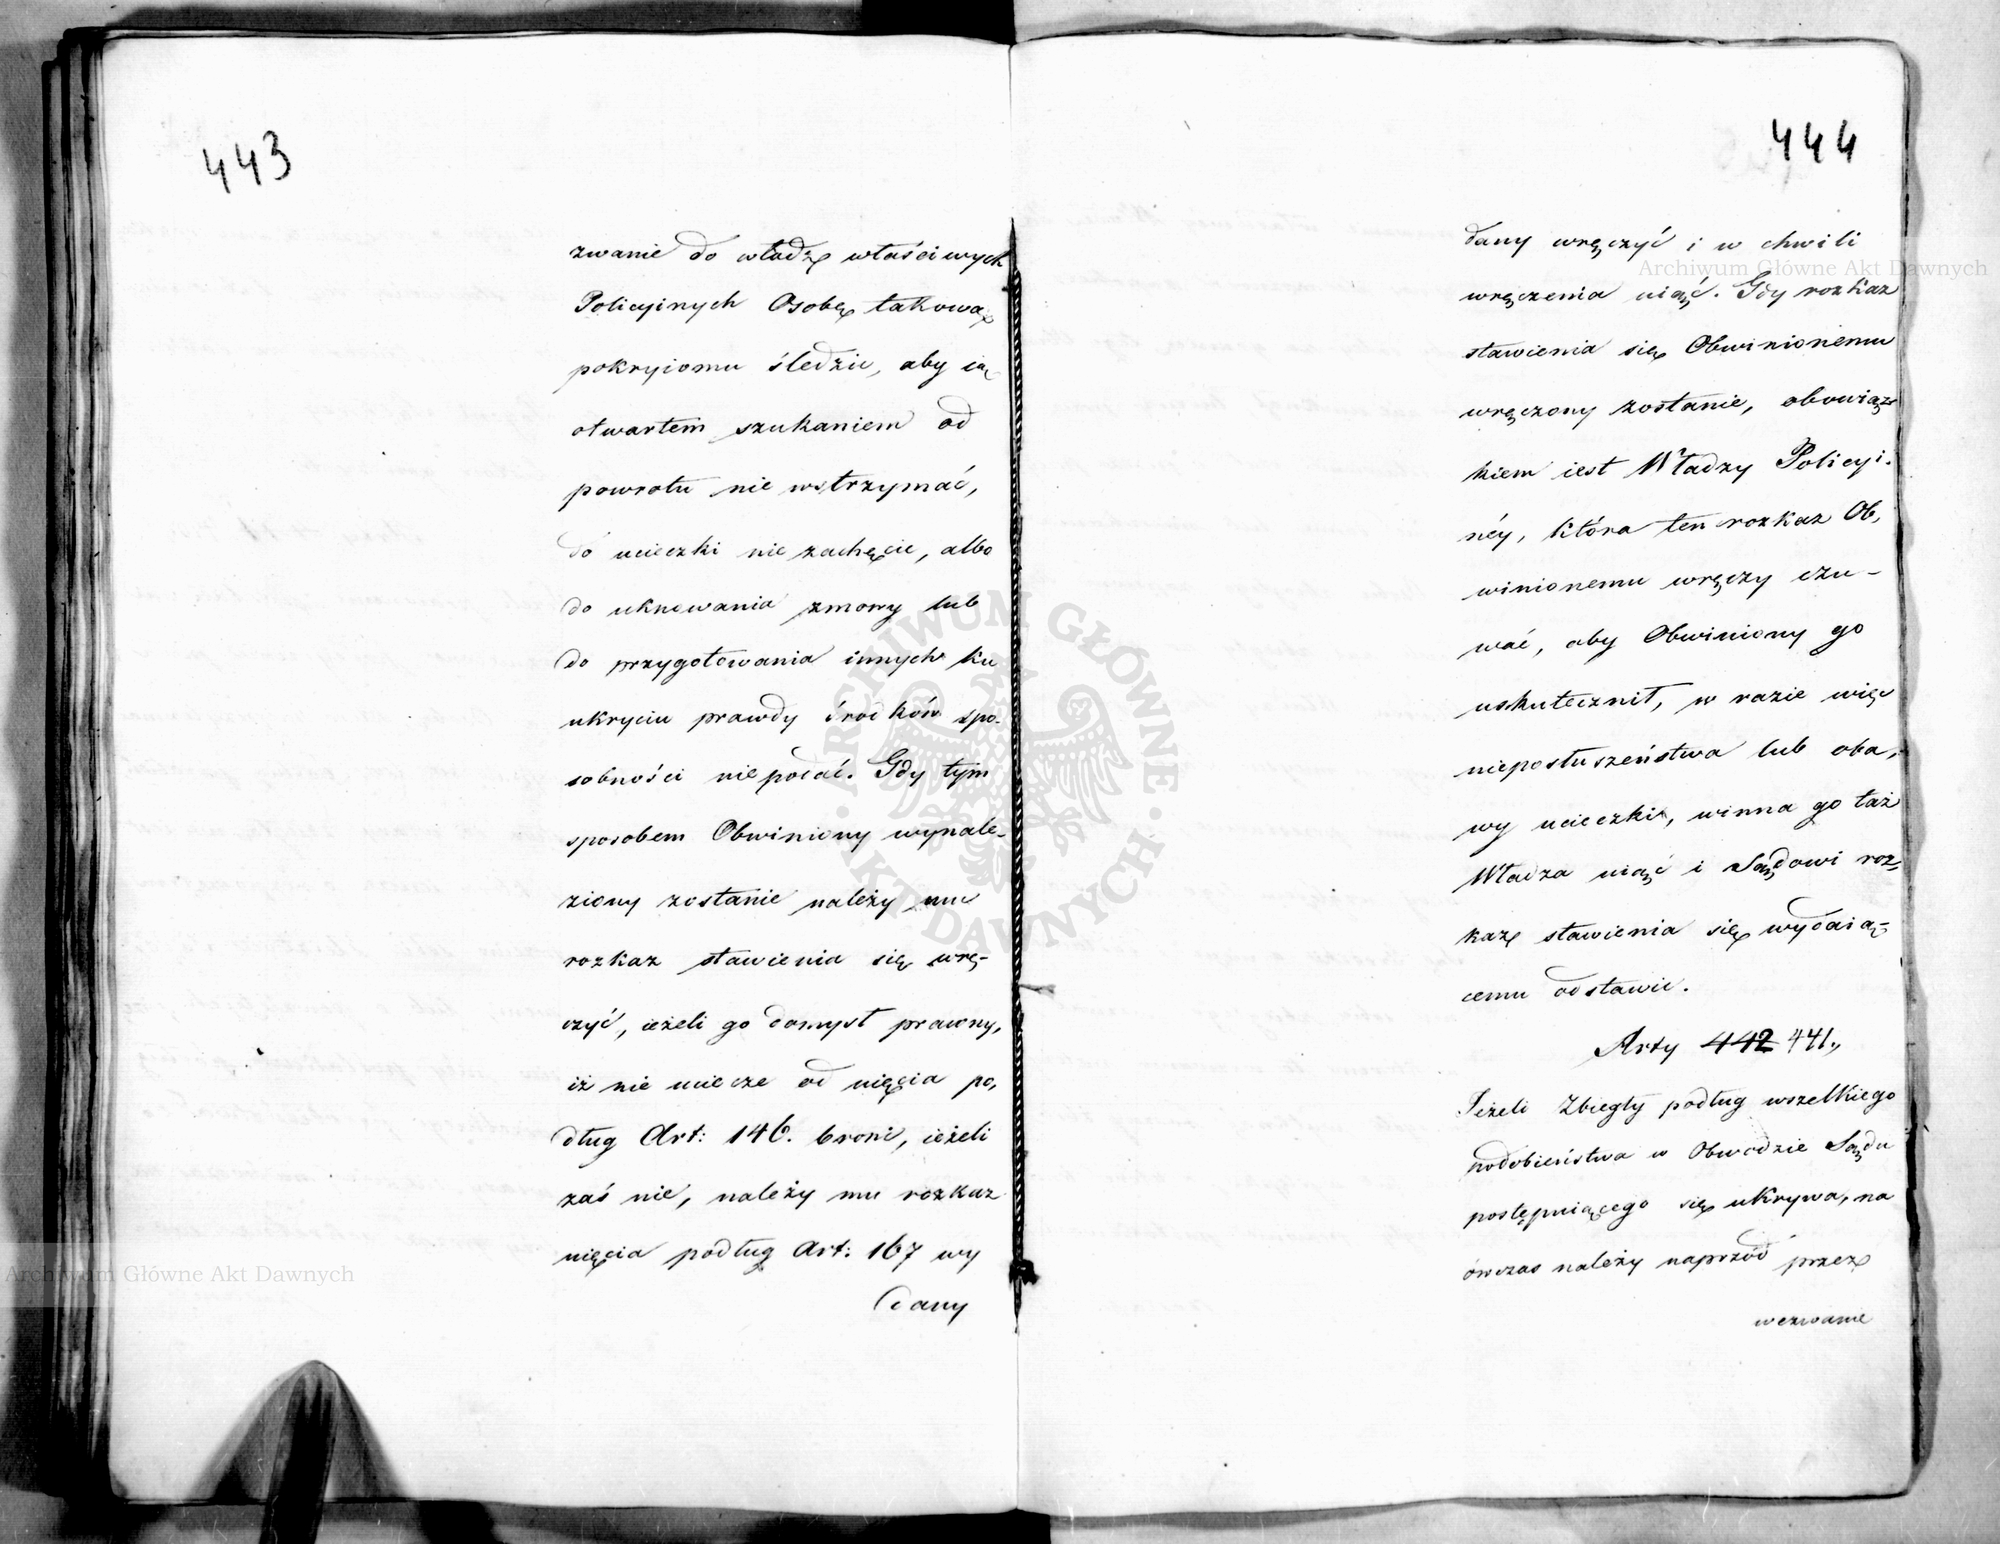 443
zwanie do władz właściwych
Policyinych Osobę takową
pokryiomu śledzić, aby ią
otwartem szukaniem od
powrotu nie wstrzymać,
do ucieczki nie zachęcić, albo
do uknowania zmowy lub
do przygotowania innych ku
ukryciu prawdy środków spo-
sobności nie podać. Gdy tym
sposobem Obwiniony wynale-
ziony zostanie należy mu
rozkaz stawienia się wrę-
czyć, ieżeli go domysł prawny,
iż nie uciecze od uięcia po,
dług Art: 146. broni, ieżeli
zaś nie, należy mu rozkaz
uięcia podług Art: 167 wy
dany
444
dany wręczyć i w chwili
wręczenia uiąć. Gdy rozkaz
stawienia się Obwinionemu
wręczony zostanie, obowiąz-
kiem iest Władzy Policyi.
néy, która ten rozkaz Ob,
winionemu wręczy czu-
wać, aby Obwiniony go
uskutecznił, w razie więc
nieposłuszeństwa lub oba,
wy ucieczki, winna go taż
Władza uiąć i Sądowi roz-
kaz stawienia się wydaią-
cemu odstawić.
Arty 442 441.,
Jeżeli Zbiegły podług wszelkiego
podobieństwa w Obwodzie Sądu
postępuiącego się ukrywa, na
ówczas należy naprzód przez
wezwanie
Archiwum Główne Akt Dawnych
Archiwum Główne Akt Dawnych
ARCHIWUM GŁÓWNE · AKT DAWNYCH ·